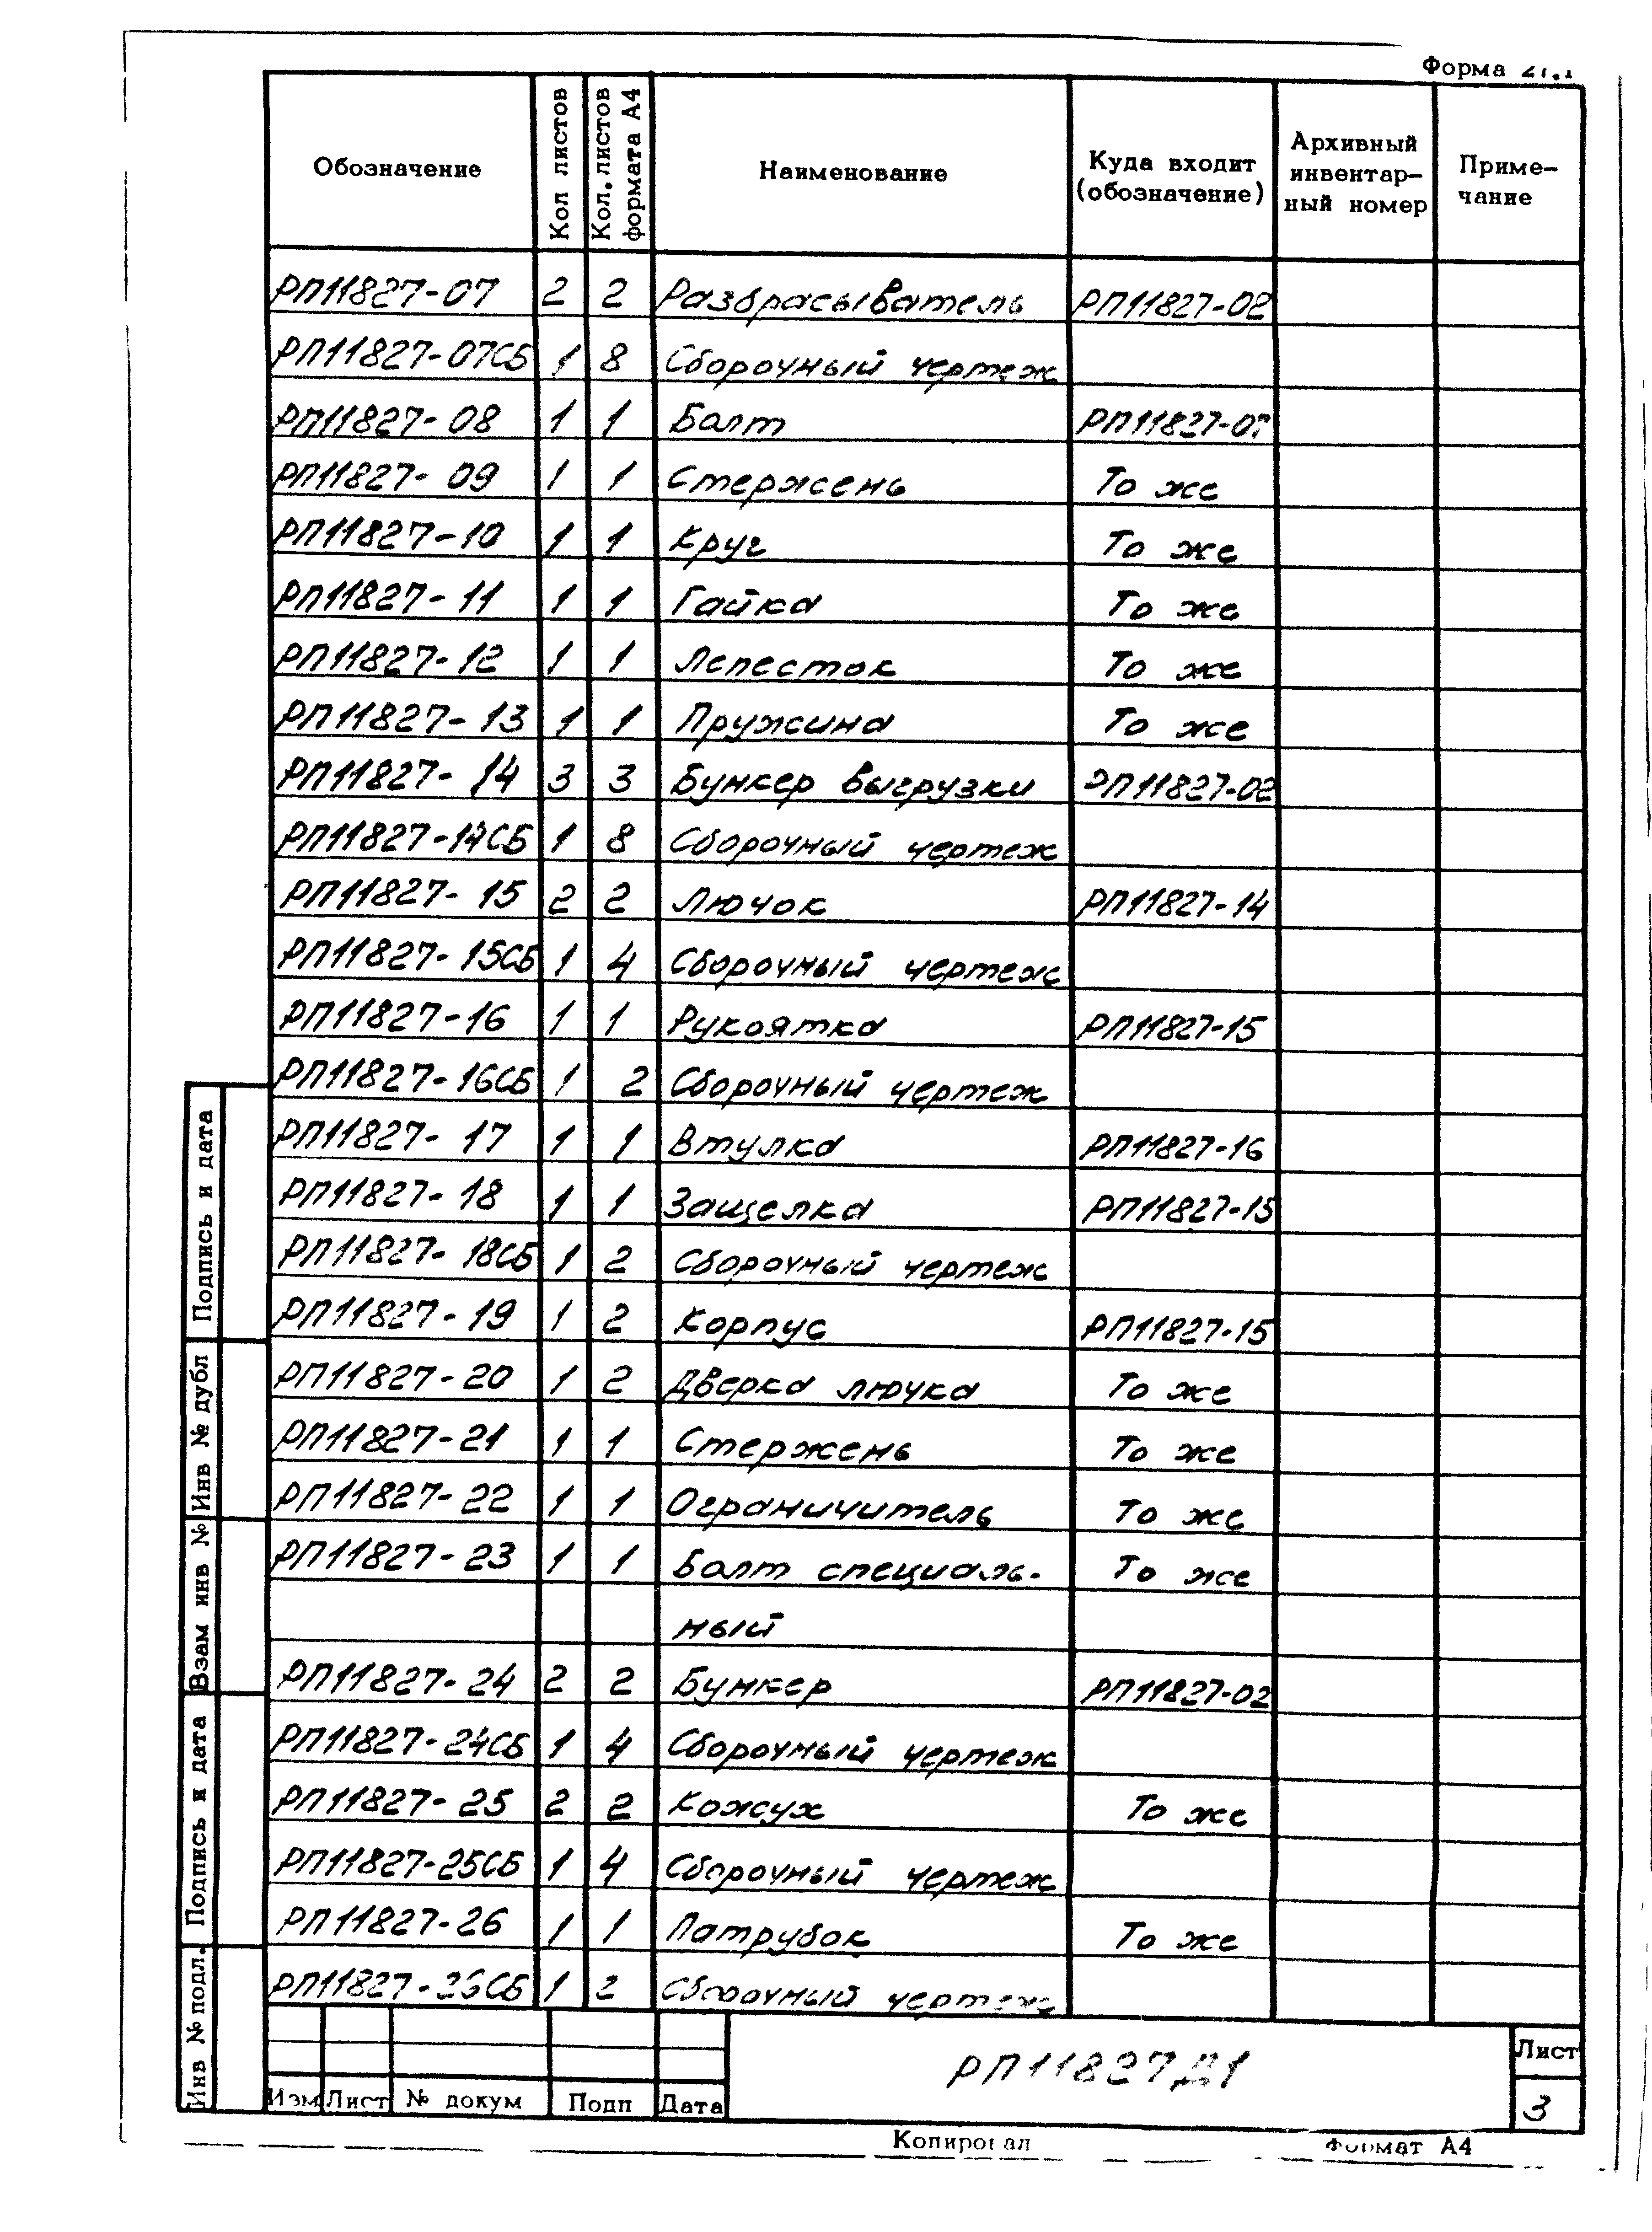 Форма 21.1
Обозначение | Кол листов | Кол. листов формата А4 | Наименование | Куда входит (обозначение) | Архивный инвентар-ный номер | Приме-чание
РП11827-07 2 2 Разбрасыватель РП11827-02
РП11827-07СБ 1 8 Сборочный чертеж
РП11827-08 1 1 Болт РП11827-07
РП11827-09 1 1 Стержень То же
РП11827-10 1 1 Круг То же
РП11827-11 1 1 Гайка То же
РП11827-12 1 1 Лепесток То же
РП11827-13 1 1 Пружина То же
РП11827-14 3 3 Бункер выгрузки РП11827-02
РП11827-14СБ 1 8 Сборочный чертеж
РП11827-15 2 2 Лючок РП11827-14
РП11827-15СБ 1 4 Сборочный чертеж
РП11827-16 1 1 Рукоятка РП11827-15
РП11827-16СБ 1 2 Сборочный чертеж
РП11827-17 1 1 Втулка РП11827-16
РП11827-18 1 1 Защелка РП11827-15
РП11827-18СБ 1 2 Сборочный чертеж
РП11827-19 1 2 Корпус РП11827-15
РП11827-20 1 2 Дверка лючка То же
РП11827-21 1 1 Стержень То же
РП11827-22 1 1 Ограничитель То же
РП11827-23 1 1 Болт специаль- То же
ный
РП11827-24 2 2 Бункер РП11827-02
РП11827-24СБ 1 4 Сборочный чертеж
РП11827-25 2 2 Кожух То же
РП11827-25СБ 1 4 Сборочный чертеж
РП11827-26 1 1 Патрубок То же
РП11827-26СБ 1 2 Сборочный чертеж
Подпись и дата
Инв № дубл
Взам инв №
Подпись и дата
Инв № подл.
РП11827Д1
Лист
3
Изм Лист № докум Подп Дата
Копировал Формат А4